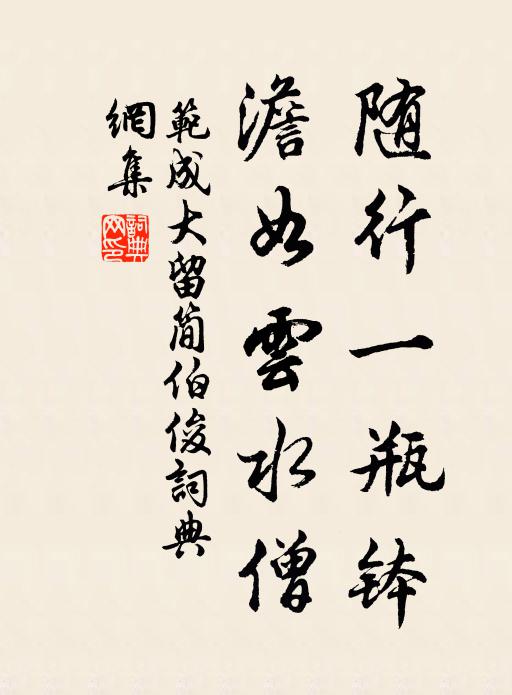 随行一瓶鉢
澹如雲水僧
範成大留簡伯俊詞典
網集
詞典網印